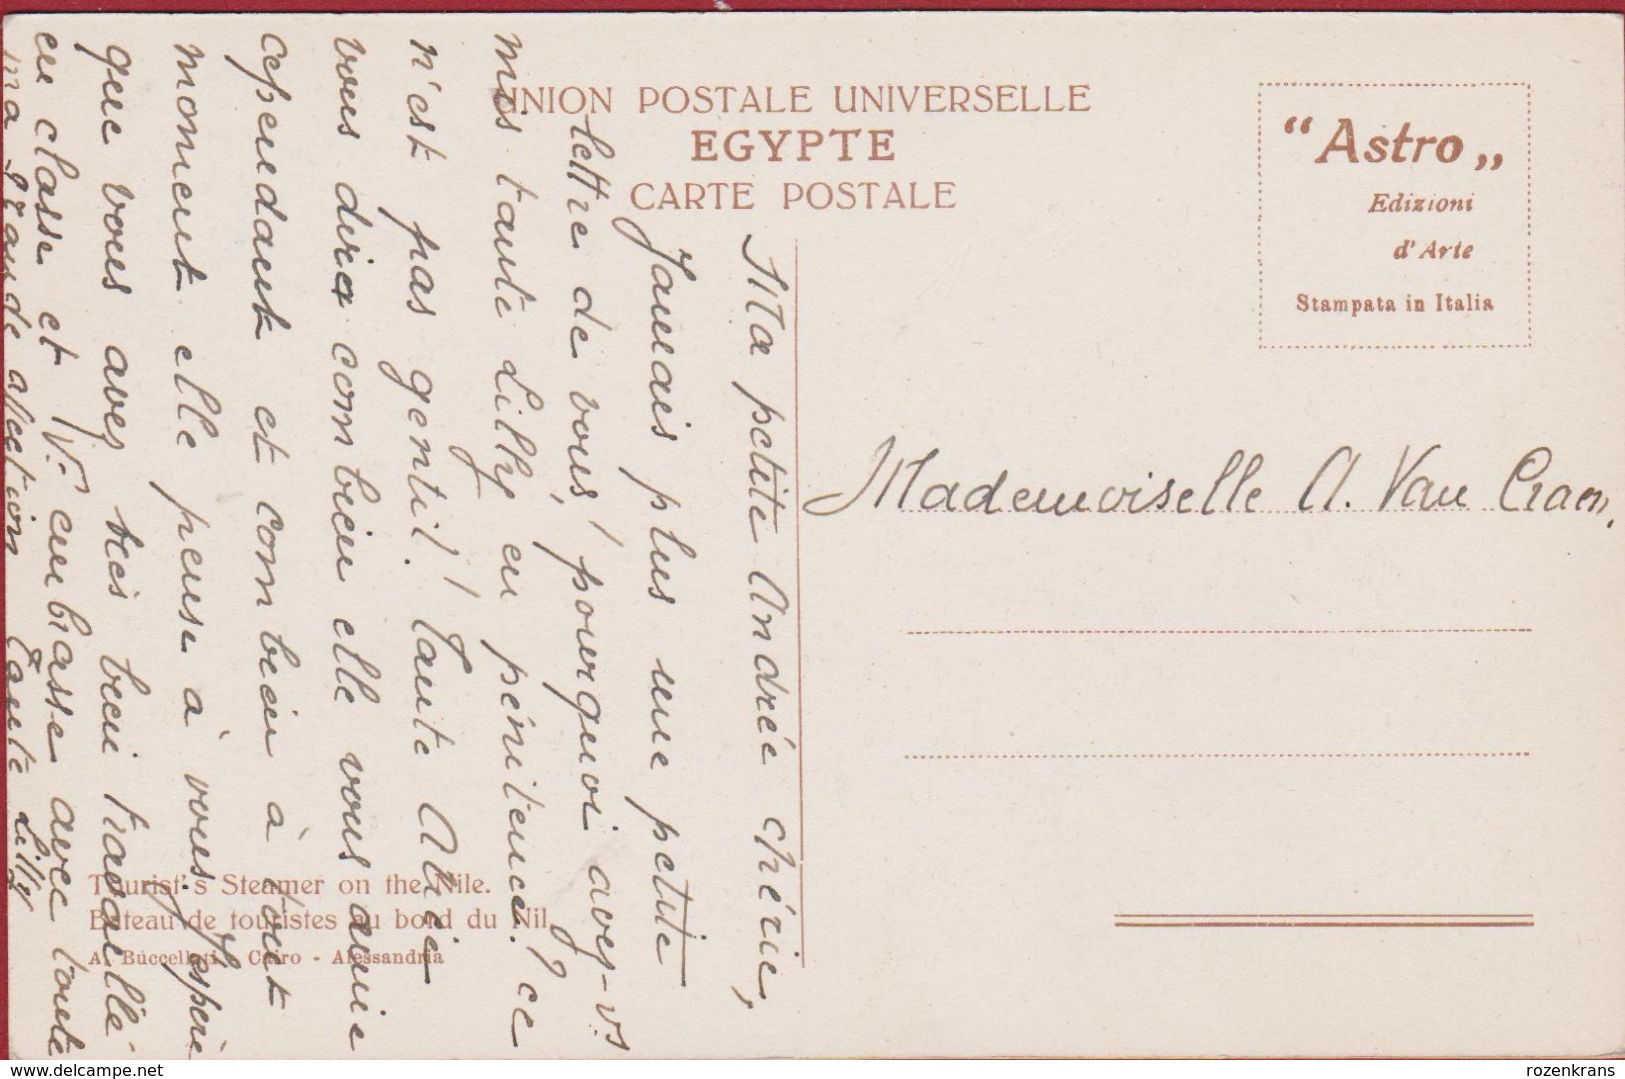 UNION POSTALE UNIVERSELLE
EGYPTE
CARTE POSTALE
"Astro„
Edizioni
d'Arte
Stampata in Italia
Ma petite Andrée chérie,
Jamais plus une petite
lettre de vous, pourquoi avez-vs
mis tante Lilly en pénitence? ce
n'est pas gentil! Tante
vous dira combien elle vous aime
cependant et combien à tout
moment elle pense à vous. J'espère
que vous avez très bien travaillé
en classe et v. embrasse avec toute
ma grande affection Tante Lilly
Mademoiselle A. Van
Tourist's Steamer on the Nile.
Bateau de touristes au bord du Nil.
A. Buccellati - Cairo - Alessandria
delcampe.net
rozenkrans